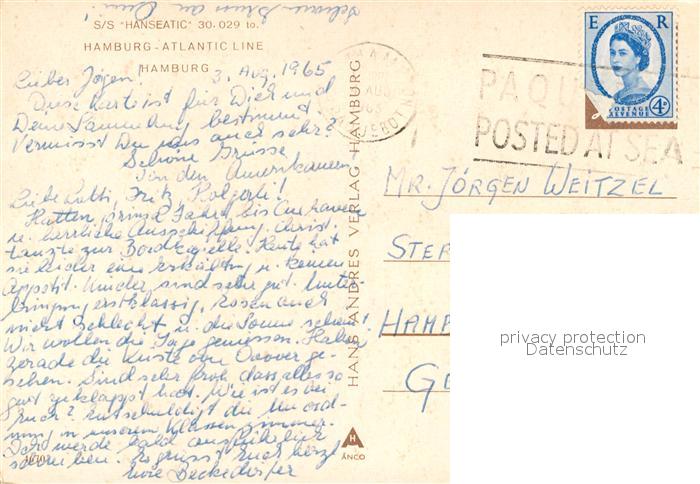 S/S "HANSEATIC" 30.029 to.
HAMBURG - ATLANTIC LINE
HAMBURG
3. Aug. 1965
Lieber Jörgen!
Diese Karte ist für Dich und
Deine Sammlung bestimmt.
Vermisst Du uns auch sehr?
Schöne Grüsse
von den Amerikanern
Fritz,
Hatten Fahrt bis Cuxhaven
u. herrliche Ausschiffung. Christ.
tanzte zur Bordkapelle. Heute hat
sie leider eine Erkältung u. keinen
Appetit. Kinder sind sehr gut. Unter-
bringung erstklassig, Essen auch
nicht schlecht u. die Sonne scheint!
Wir wollen die Tage geniessen. Haben
gerade die Küste von Doover ge-
sehen. Sind sehr froh, dass alles so
gut geklappt hat. Wie ist es bei
Euch? Entschuldigt die Unord-
nung in unserem
werde bald ausführlich
schreiben. Es grüsst Euch herzl.
Eure Beckedorfer
16707
HANS ANDRES VERLAG HAMBURG
ANCO
PAQU
POSTED AT SEA
E R
POSTAGE
REVENUE
4D
MR. JÖRGEN WEITZEL
STER
HAMB
GE
privacy protection
Datenschutz